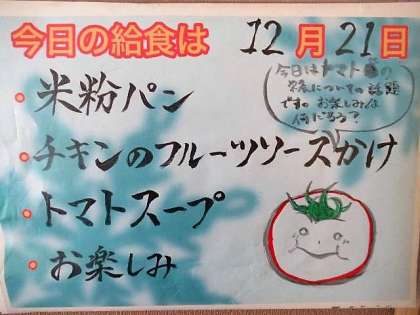 今日の給食は 12月21日
・米粉パン
・チキンのフルーツソースかけ
・トマトスープ
・お楽しみ
今日はトマトの
についての話題
ですの お楽しみは
何だろう?